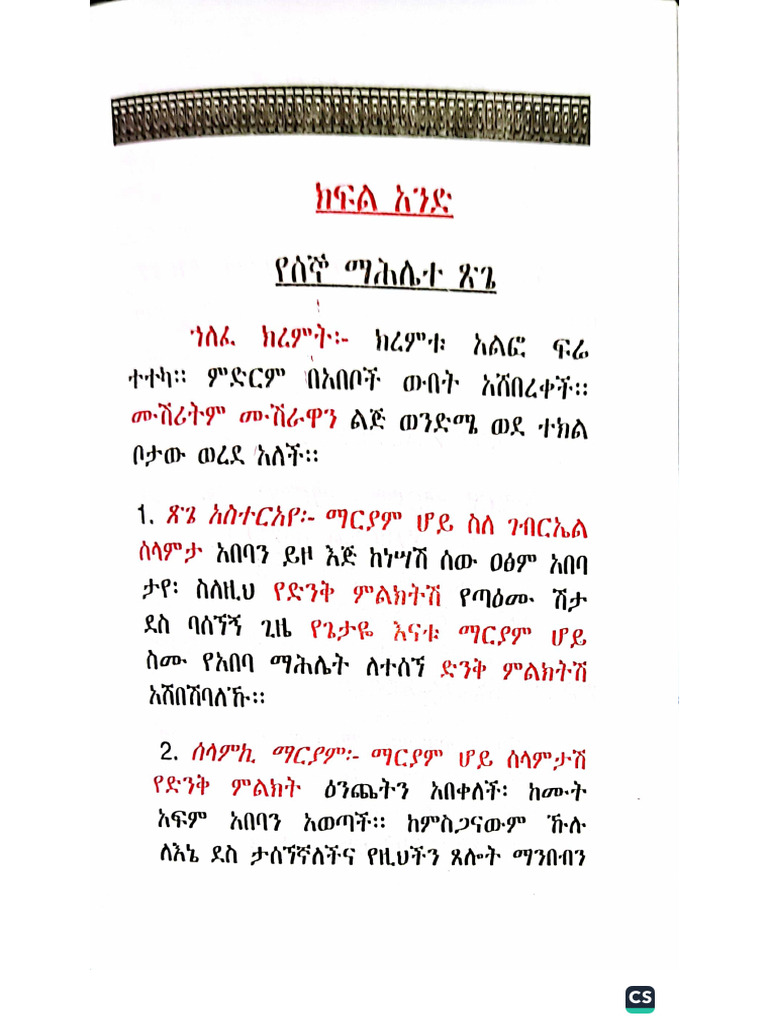 ክፍል አንድ
የሰኞ ማሕሌተ ጽጌ
ኀለፈ ክረምት፡- ክረምቱ አልፎ ፍሬ
ተተካ። ምድርም በአበቦች ውበት አሸበረቀች።
ሙሽሪትም ሙሽራዋን ልጅ ወንድሜ ወደ ተክል
ቦታው ወረደ አለች።
1. ጽጌ አስተርአየ፡- ማርያም ሆይ ስለ ገብርኤል
ሰላምታ አበባን ይዞ እጅ ከነሣሽ ሰው ዐፅም አበባ
ታየ፡ ስለዚህ የድንቅ ምልክትሽ የጣዕሙ ሽታ
ደስ ባሰኘኝ ጊዜ የጌታዬ እናቱ ማርያም ሆይ
ስሙ የአበባ ማሕሌት ለተሰኘ ድንቅ ምልክትሽ
አሸበሽባለኹ።
2. ሰላምኪ ማርያም፡- ማርያም ሆይ ሰላምታሽ
የድንቅ ምልክት ዕንጨትን አበቀለች፡ ከሙት
አፍም አበባን አወጣች። ከምስጋናውም ኹሉ
ለእኔ ደስ ታሰኘኛለችና የዚህችን ጸሎት ማንበብን
CS